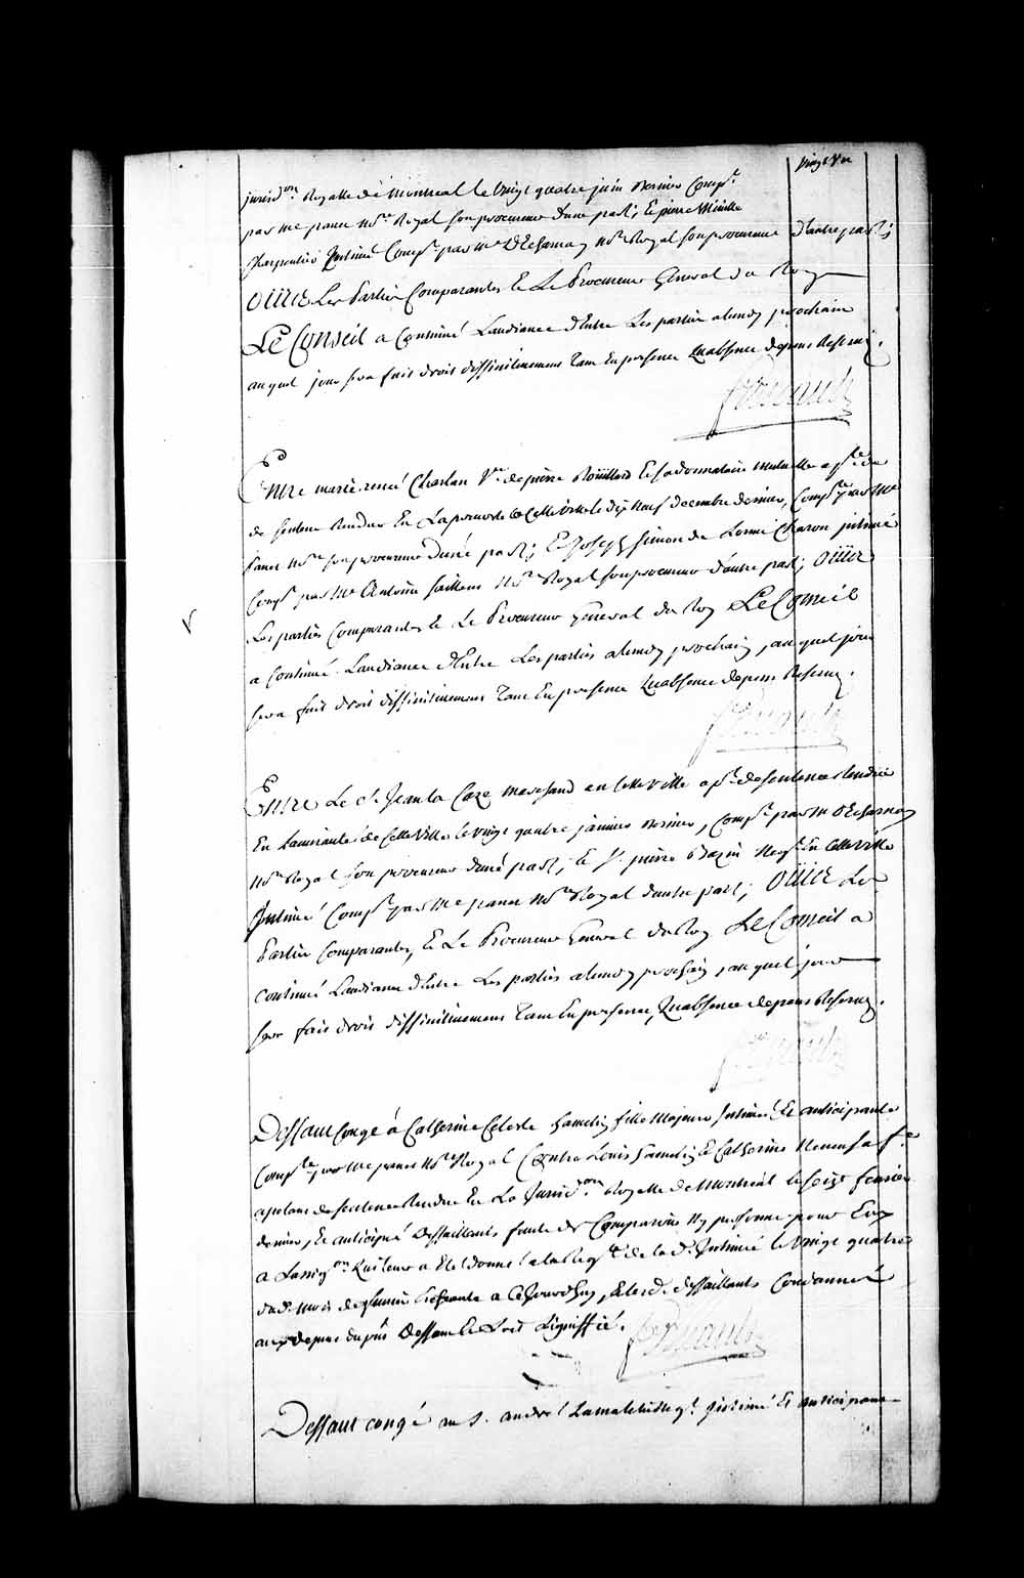 vingt un
jurisd.on Royalle de Montreal le vingt quatre juin dernier Comp.t
par me panet no.re Royal son procureur d'une part; Et pierre Mivílle
Charpentier Intimé Comp.t par me DEcharnay no.re Royal son procureur d'autre part;
OÜIIE Les Parties Comparantes Et Le Procureur General du Roy
LE CONSEIL a Continué Laudiance d'Entre Les parties a lundy prochain
auquel jour sera fait droit deffinitivement Tant En presence Quabsence depens Reservez.
Foucault
Entre marie renée Charlan V.ve de pierre Roüillard Et sa donnataire mutuelle ap.te de
de sentence Rendue En La prevosté de Cette ville le dix neuf decembre dernier, Comp.te par Me
panet no.re son procureur d'une part; Et Joseph simon de Lorme Charon jntimé
Comp.t par Me Antoine saillant no.re Royal son procureur d'autre part; OÜIIE
Les parties Comparantes Et Le Procureur General du Roy Le Conseil
a Continué Laudiance d'Entre Les parties a lundy prochain, auquel jour
sera fait droit diffinitivement Tant En presence Quabsence depens Reservez.
Foucault
Entre Le S.r Jean la Caze marchand en Cette Ville ap.t de sentence Rendüe
En Lamirauté de Cette Ville le vingt quatre janvier dernier, Comp.t par M.e DEcharnay
no.re Royal son procureur d'une part; Et S.r pierre Bazin neg.t En Cette Ville
Intimé Comp.t par Me panet no.re Royal d'autre part; OÜIIE Les
Parties Comparantes, Et Le Procureur General du Roy Le Conseil a
Continué Laudiance d'Entre Les parties a lundy prochain, auquel jour
sera fait droit diffinitivement Tant En presence, Quabsence depens Reservez.
Foucault
Deffaut Congé a Catherine Celeste hamelin fille Majeure Intimée Et anticipante
Comp.te par Me panet no.re Royal Contre Louis hamelin Et Catherine neveu sa f.e
apelans de sentence Rendue En La Jurisd.on Royalle de Montreal le seize fevrier
dernier, Et anticipés Deffaillants faute de Comparoir Ny personne pour Eux
a Lassig.on Qui Leur a Eté donné a la Req.te de la d. Intimée le vingt quatre
du d. mois de Echeante a Cejourdhuy, Et les d. deffaillants Condamnés
aux depens du p.nt Deffaut Et soit signiffié.
Foucault
Deffaut congé au S. andré Lamaletie Neg.t Intimé Et anticipant